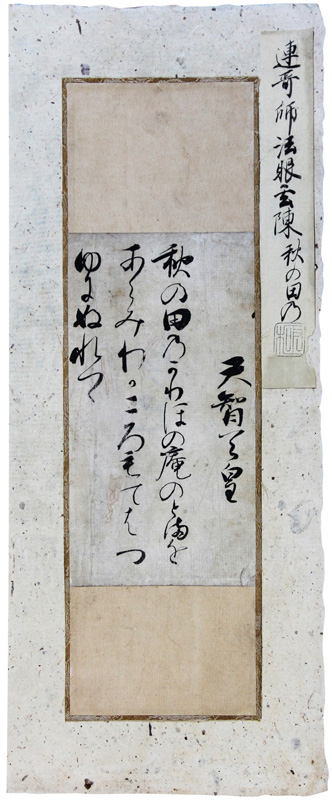 連哥師法眼雲陳 秋の田乃
天智天皇
秋の田乃かりほの庵のとまを
あらみわかころもてはつ
ゆにぬれつゝ